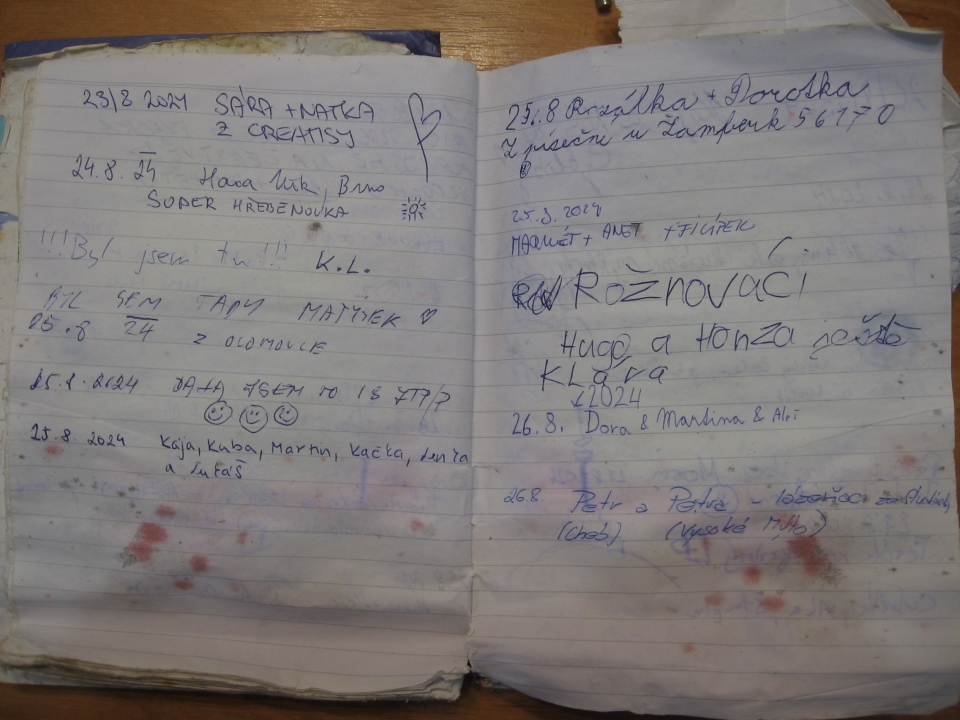 23/8 2021 SÁRA + NATKA
Z CREATISY
24.8. 24 Hana, Brno
SUPER HŘEBENOVKA
!!! Byl jsem tu !!! K.L.
BYL SEM TADY MATÝSEK
25.8 24 Z OLOMOUCE
25.8.2024 JSEM TO
25.8. 2024 Kája, Kuba, Martin, Kačka, Lenka
a Lukáš
25.8 Rozálka + Dorotka
Z písečné u Žamberk 56170
25.8.2024
MARKÉT + ANET + FILÍPEK
Rožnováci
Hugo a Honza ještě
Klára
2024
26.8. Dora & Martina & Aleš
26.8. Petr a Petra - lázeňáci ze
(Cheb) (Vysoké Mýto)